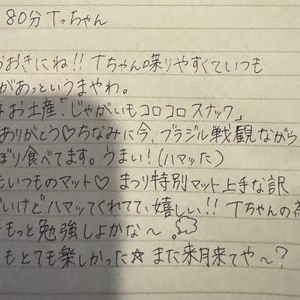 80分 Tっちゃん
おおきにね!! Tちゃん喋りやすくていつも
があっというまやわ。
お土産「じゃがいもコロコロスナック」
ありがとう♡ちなみに今、ブラジル戦観ながら
ぽり食べてます。うまい!(ハマッた)
もいつものマット♡ まつり特別マット上手な訳
いけどハマッてくれてて、嬉しい!! Tちゃんの為
もっと勉強しよかな〜
もとても楽しかった☆また来月来てや〜?